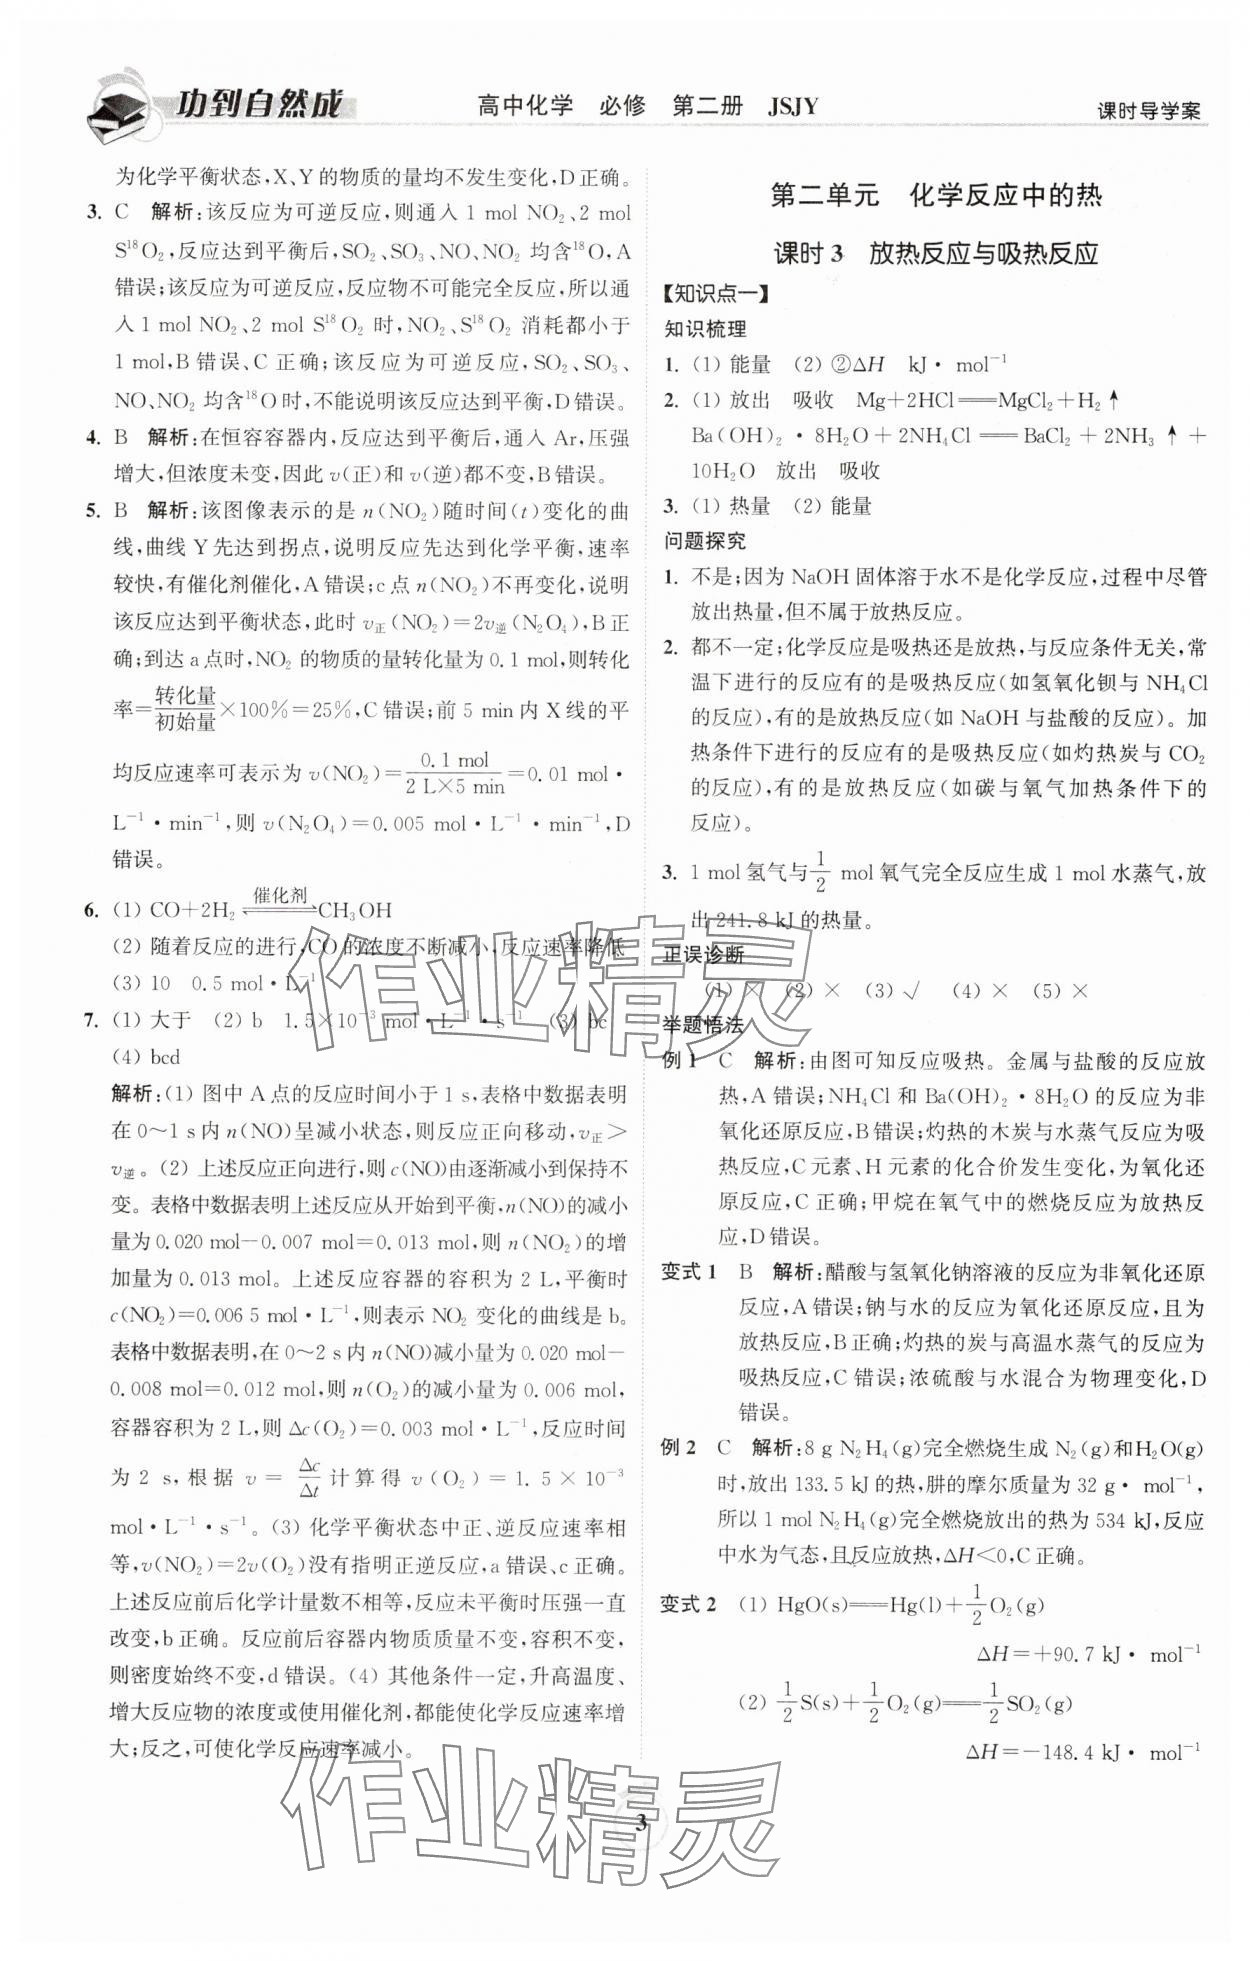 功到自然成
高中化学 必修 第二册 JSJY
课时导学案
为化学平衡状态,X、Y的物质的量均不发生变化,D正确。
3. C 解析:该反应为可逆反应,则通入1 mol NO₂、2 mol
S¹⁸O₂,反应达到平衡后,SO₂、SO₃、NO、NO₂ 均含¹⁸O,A
错误;该反应为可逆反应,反应物不可能完全反应,所以通
入1 mol NO₂、2 mol S¹⁸O₂ 时,NO₂、S¹⁸O₂ 消耗都小于
1 mol,B错误、C正确;该反应为可逆反应,SO₂、SO₃、
NO、NO₂ 均含¹⁸O时,不能说明该反应达到平衡,D错误。
4. B 解析:在恒容容器内,反应达到平衡后,通入Ar,压强
增大,但浓度未变,因此v(正)和v(逆)都不变,B错误。
5. B 解析:该图像表示的是n(NO₂)随时间(t)变化的曲
线,曲线Y先达到拐点,说明反应先达到化学平衡,速率
较快,有催化剂催化,A错误;c点n(NO₂)不再变化,说明
该反应达到平衡状态,此时v正(NO₂)=2v逆(N₂O₄),B正
确;到达a点时,NO₂ 的物质的量转化量为0.1 mol,则转化
率=转化量/初始量×100%=25%,C错误;前5 min内X线的平
均反应速率可表示为v(NO₂)=0.1 mol/2 L×5 min=0.01 mol·
L⁻¹·min⁻¹,则v(N₂O₄)=0.005 mol·L⁻¹·min⁻¹,D
错误。
6. (1) CO+2H₂⇌(催化剂)CH₃OH
(2) 随着反应的进行,CO的浓度不断减小,反应速率降低
(3) 10 0.5 mol·L⁻¹
7. (1) 大于 (2) b 1.5×10⁻³ mol·L⁻¹·s⁻¹ (3) bc
(4) bcd
解析:(1) 图中A点的反应时间小于1 s,表格中数据表明
在0~1 s内n(NO)呈减小状态,则反应正向移动,v正>
v逆。(2) 上述反应正向进行,则c(NO)由逐渐减小到保持不
变。表格中数据表明上述反应从开始到平衡,n(NO)的减小
量为0.020 mol-0.007 mol=0.013 mol,则n(NO₂)的增
加量为0.013 mol。上述反应容器的容积为2 L,平衡时
c(NO₂)=0.006 5 mol·L⁻¹,则表示NO₂ 变化的曲线是b。
表格中数据表明,在0~2 s内n(NO)减小量为0.020 mol-
0.008 mol=0.012 mol,则n(O₂)的减小量为0.006 mol,
容器容积为2 L,则Δc(O₂)=0.003 mol·L⁻¹,反应时间
为2 s,根据v=Δc/Δt计算得v(O₂)=1.5×10⁻³
mol·L⁻¹·s⁻¹。(3) 化学平衡状态中正、逆反应速率相
等,v(NO₂)=2v(O₂)没有指明正逆反应,a错误、c正确。
上述反应前后化学计量数不相等,反应未平衡时压强一直
改变,b正确。反应前后容器内物质质量不变,容积不变,
则密度始终不变,d错误。(4) 其他条件一定,升高温度、
增大反应物的浓度或使用催化剂,都能使化学反应速率增
大;反之,可使化学反应速率减小。
第二单元 化学反应中的热
课时3 放热反应与吸热反应
【知识点一】
知识梳理
1. (1) 能量 (2) ②ΔH kJ·mol⁻¹
2. (1) 放出 吸收 Mg+2HCl══MgCl₂+H₂↑
Ba(OH)₂·8H₂O+2NH₄Cl══BaCl₂+2NH₃↑+
10H₂O 放出 吸收
3. (1) 热量 (2) 能量
问题探究
1. 不是;因为NaOH固体溶于水不是化学反应,过程中尽管
放出热量,但不属于放热反应。
2. 都不一定;化学反应是吸热还是放热,与反应条件无关,常
温下进行的反应有的是吸热反应(如氢氧化钡与NH₄Cl
的反应),有的是放热反应(如NaOH与盐酸的反应)。加
热条件下进行的反应有的是吸热反应(如灼热炭与CO₂
的反应),有的是放热反应(如碳与氧气加热条件下的
反应)。
3. 1 mol氢气与1/2 mol氧气完全反应生成1 mol水蒸气,放
出241.8 kJ的热量。
正误诊断
(1) × (2) × (3) √ (4) × (5) ×
举题悟法
例1 C 解析:由图可知反应吸热。金属与盐酸的反应放
热,A错误;NH₄Cl和Ba(OH)₂·8H₂O的反应为非
氧化还原反应,B错误;灼热的木炭与水蒸气反应为吸
热反应,C元素、H元素的化合价发生变化,为氧化还
原反应,C正确;甲烷在氧气中的燃烧反应为放热反
应,D错误。
变式1 B 解析:醋酸与氢氧化钠溶液的反应为非氧化还原
反应,A错误;钠与水的反应为氧化还原反应,且为
放热反应,B正确;灼热的炭与高温水蒸气的反应为
吸热反应,C错误;浓硫酸与水混合为物理变化,D
错误。
例2 C 解析:8 g N₂H₄(g)完全燃烧生成N₂(g)和H₂O(g)
时,放出133.5 kJ的热,肼的摩尔质量为32 g·mol⁻¹,
所以1 mol N₂H₄(g)完全燃烧放出的热为534 kJ,反应
中水为气态,且反应放热,ΔH<0,C正确。
变式2 (1) HgO(s)══Hg(l)+1/2O₂(g)
ΔH=+90.7 kJ·mol⁻¹
(2) 1/2S(s)+1/2O₂(g)══1/2SO₂(g)
ΔH=-148.4 kJ·mol⁻¹
3
作业精灵
作业精灵